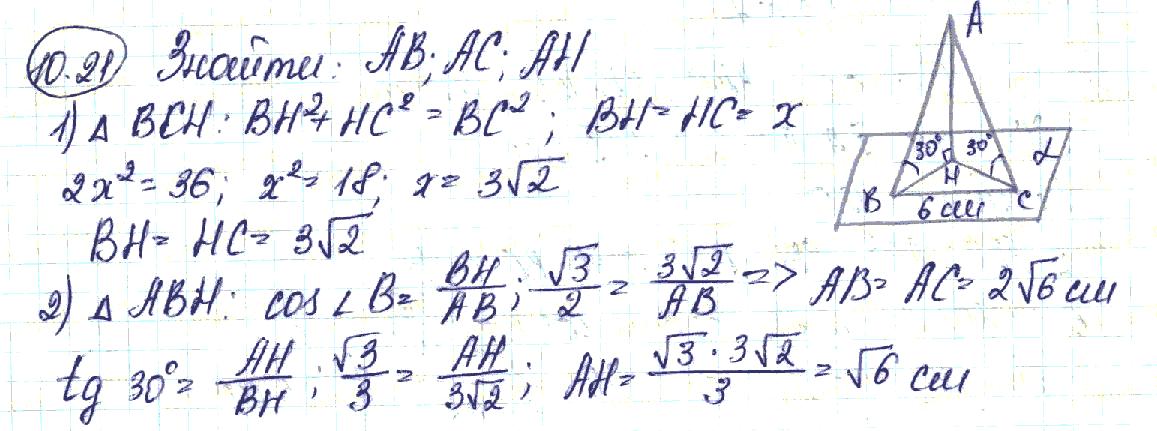 10.21 Знайти: AB; AC; AH
1) △ BCH: BH²+HC² = BC²; BH = HC = x
2x² = 36; x² = 18; x = 3√2
BH = HC = 3√2
2) △ ABH: cos∠B = BH/AB; √3/2 = 3√2/AB => AB = AC = 2√6 см
tg 30° = AH/BH; √3/3 = AH/3√2; AH = √3·3√2/3 = √6 см
A
30° 30° α
H
B C
6 см